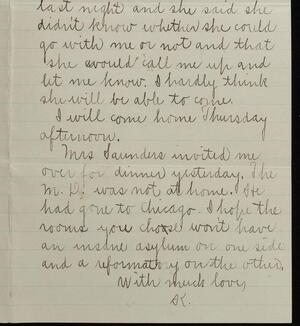 last night and she said she
didn't know whether she could
go with me or not and that
she would call me up and
let me know. I hardly think
she will be able to come.
I will come home Thursday
afternoon.
Mrs Saunders invited me
over for dinner yesterday. The
M. D. was not at home. He
had gone to Chicago. I hope the
rooms you chose wont have
an insane asylum on one side
and a reformatory on the other.
With much love,
K.